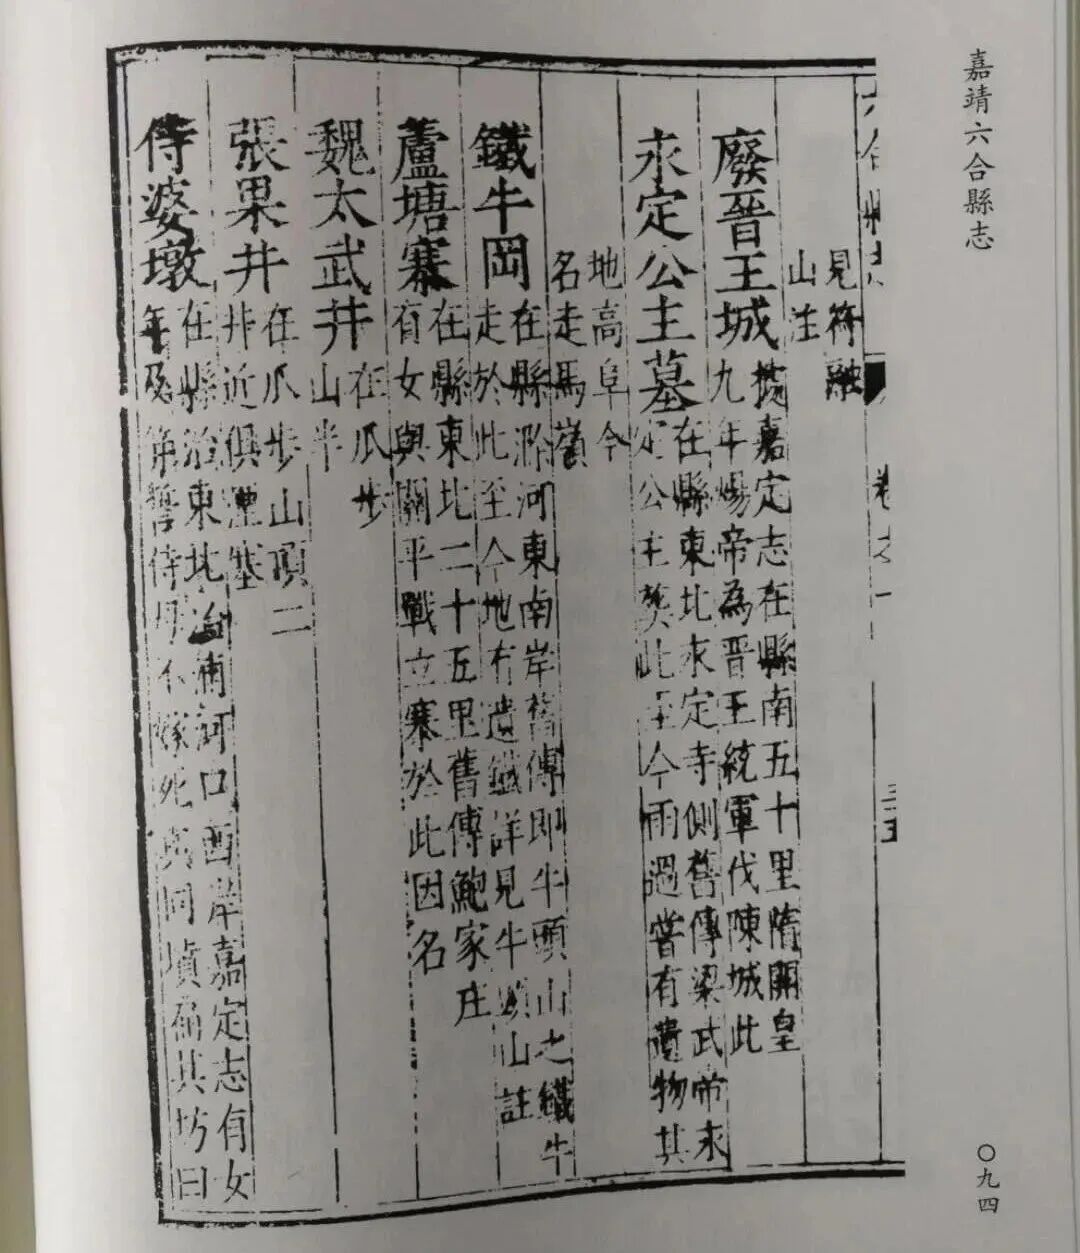 嘉靖六合縣志
〇九四
六合縣志
卷之
三五
見符融
山注
廢晉王城
據嘉定志在縣南五十里隋開皇
九年煬帝為晉王統軍伐陳城此
永定公主墓
在縣東北永定寺側舊傳梁武帝永
定公主葬此至今雨過嘗有遺物其
地高阜今
名走馬嶺
鐵牛岡
在縣滁河東南岸舊傳即牛頭山之鐵牛
走於此至今地有遺鐵詳見牛頭山註
蘆塘寨
在縣東北二十五里舊傳鮑家庄
有女與關平戰立寨於此因名
魏太武井
在瓜步
山半
張果井
在瓜步山頂二
井近俱湮塞
侍婆墩
在縣治東北冶浦河口西岸嘉定志有女
年及笄誓侍母不嫁死共同墳扁其坊曰